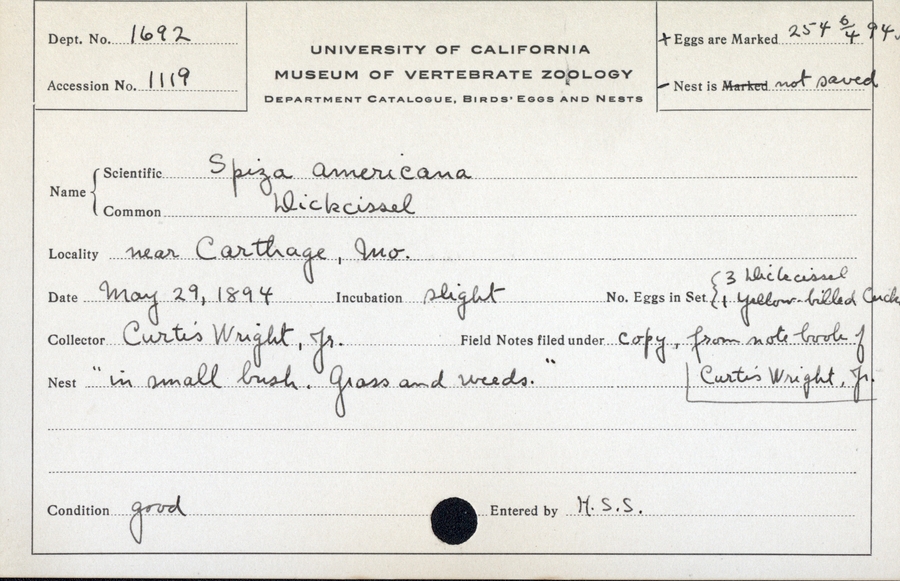 Dept. No. 1692
Accession No. 1119
UNIVERSITY OF CALIFORNIA
MUSEUM OF VERTEBRATE ZOOLOGY
DEPARTMENT CATALOGUE, BIRDS' EGGS AND NESTS
+ Eggs are Marked 254 6/4 94.
– Nest is Marked not saved
Name
Scientific Spiza americana
Common Dickcissel
Locality near Carthage, Mo.
Date May 29, 1894 Incubation slight No. Eggs in Set { 3 Dickcissel
1 Yellow-billed Cuck
Collector Curtis Wright, Jr. Field Notes filed under copy, from note book of
Curtis Wright, Jr.
Nest "in small bush. Grass and weeds."
Condition good Entered by H.S.S.